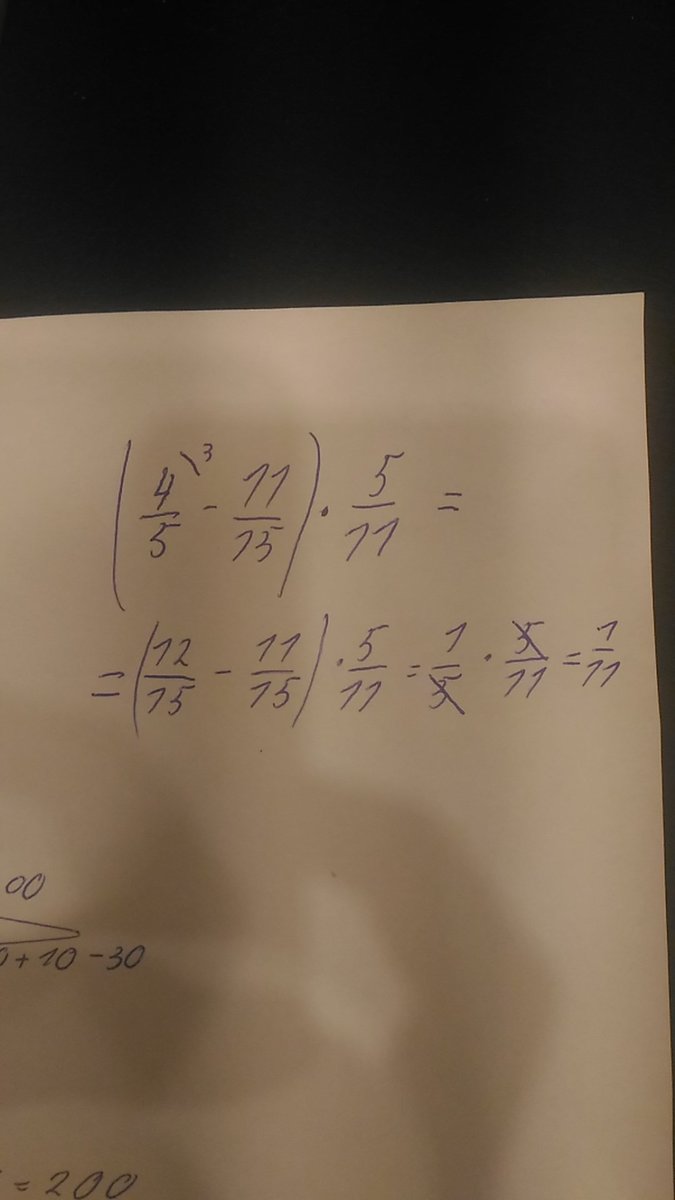 (4/5 \3 - 11/15) · 5/11 =
= (12/15 - 11/15) · 5/11 = 1/5 · 5/11 = 1/11
00
0+10-30
= 200